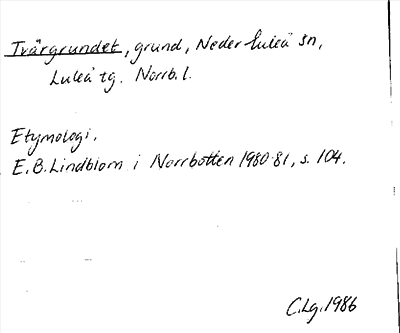 Tvärgrundet, grund, Nederluleå sn,
Luleå tg. Norrb. l.
Etymologi.
E. B. Lindblom i Norrbotten 1980-81, s. 104.
C.Lg. 1986